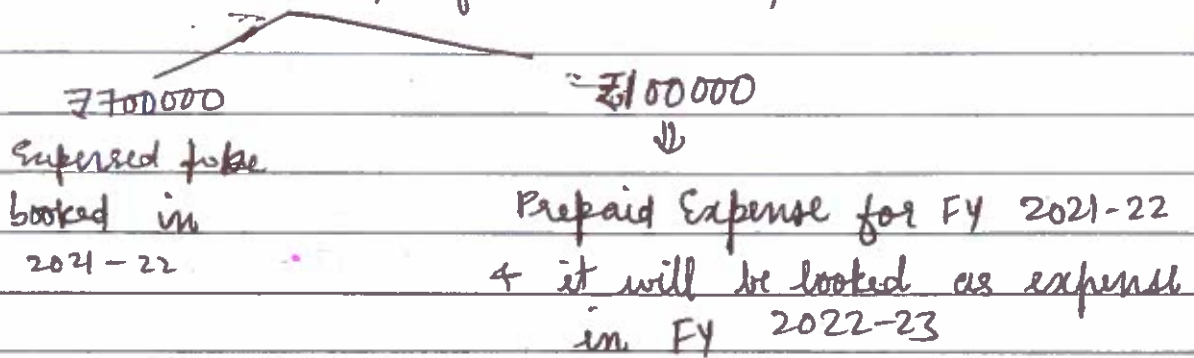 ₹700000
₹100000
⇓
Expensed to be
booked in
2021-22
Prepaid Expense for FY 2021-22
& it will be booked as expense
in FY 2022-23